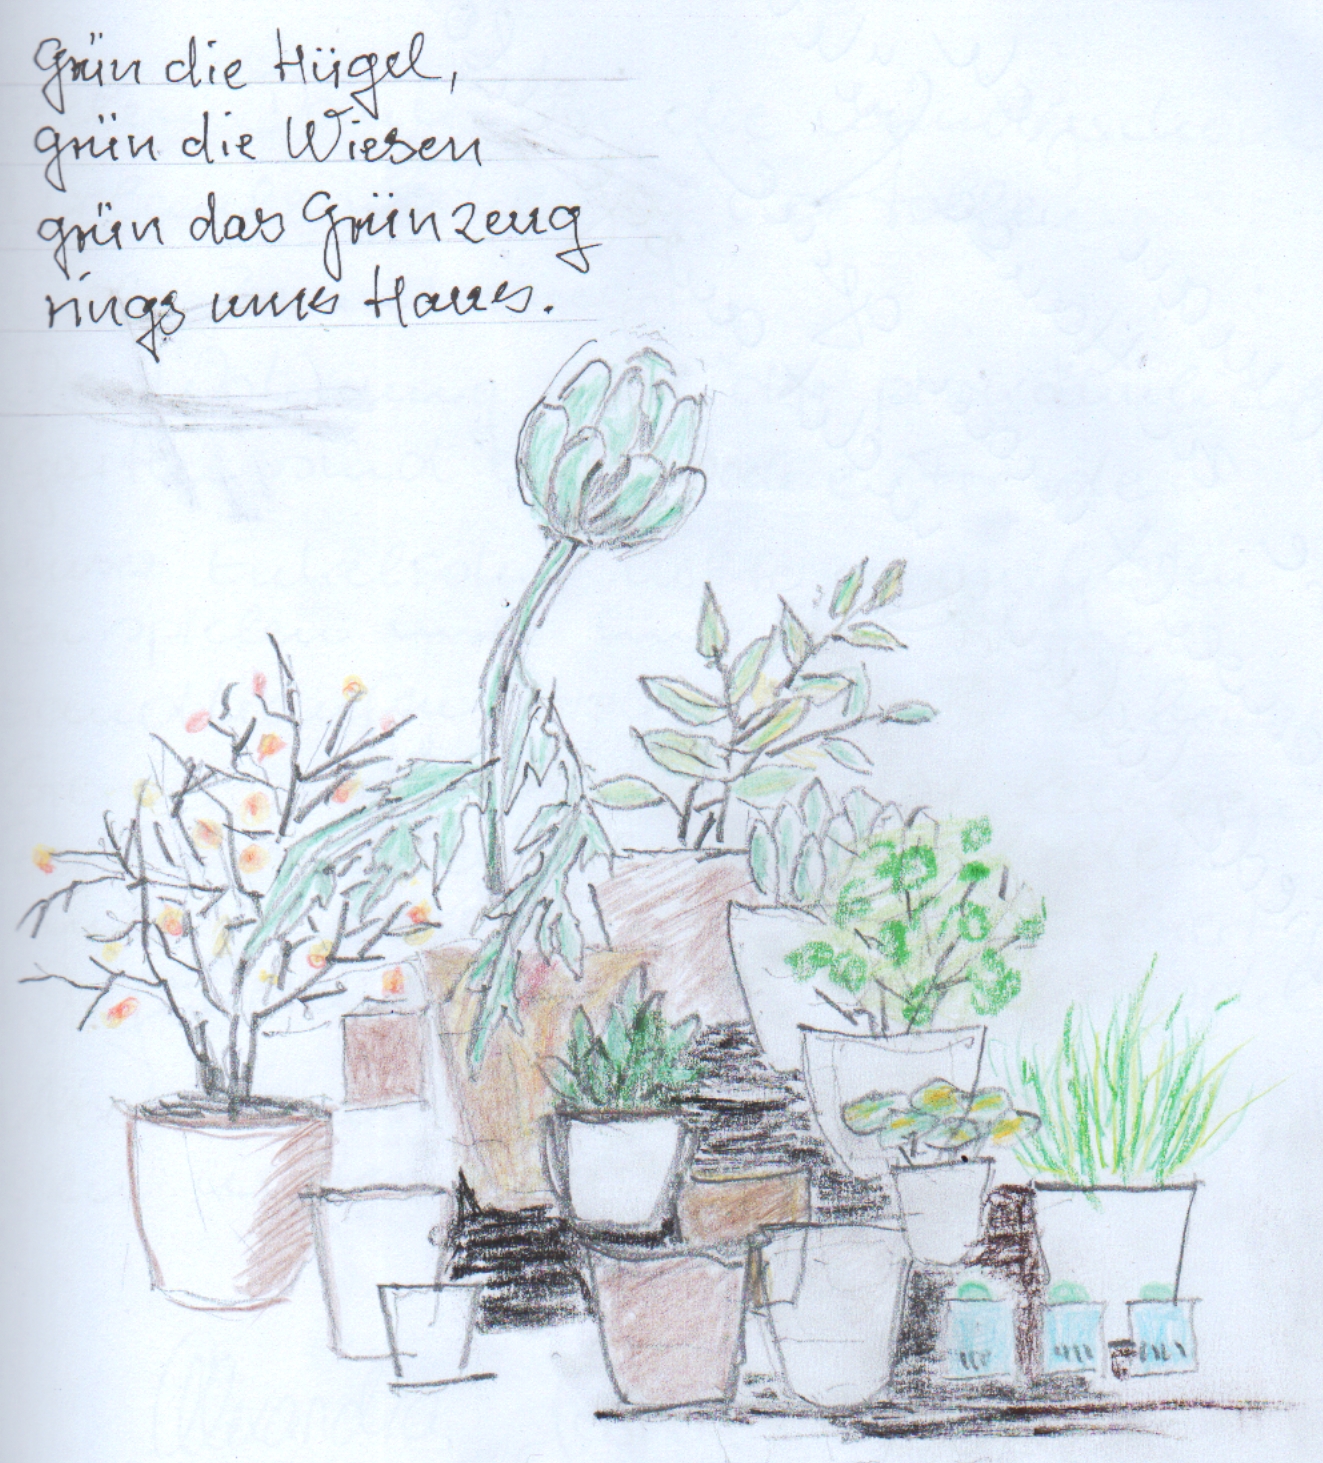 Grün die Hügel,
grün die Wiesen
grün das Grünzeug
rings ums Haus.